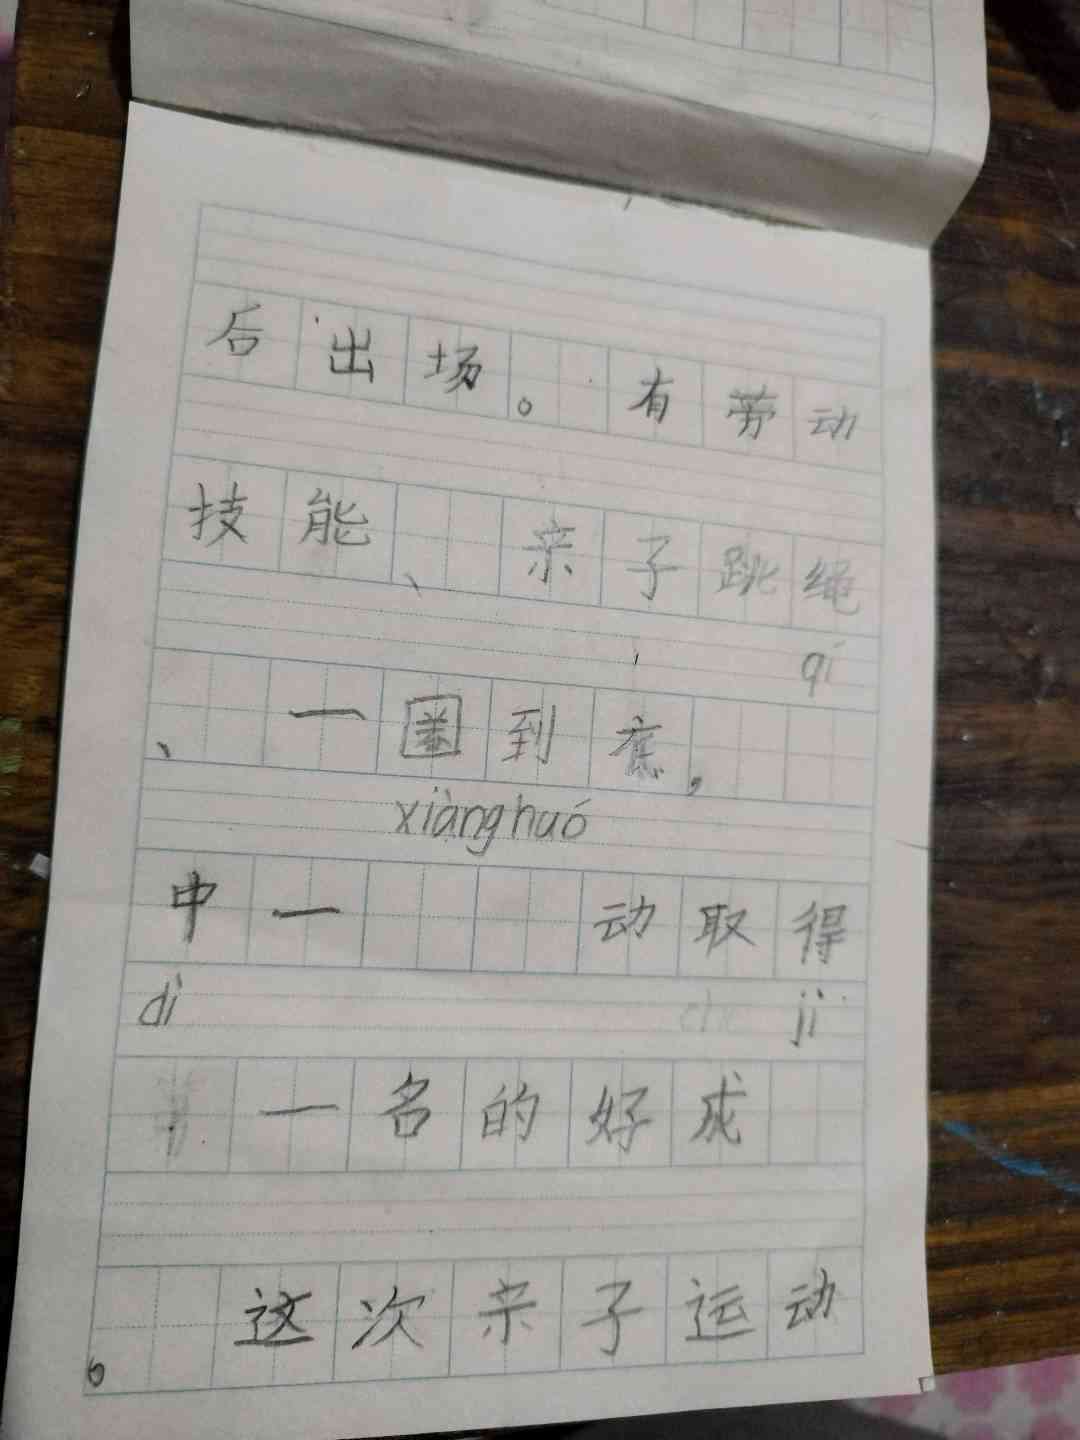 后出场。有劳动
技能、亲子跳绳
qí
、一圈到底,
xiànghuó
中一动取得
dì jì
一名的好成
。这次亲子运动